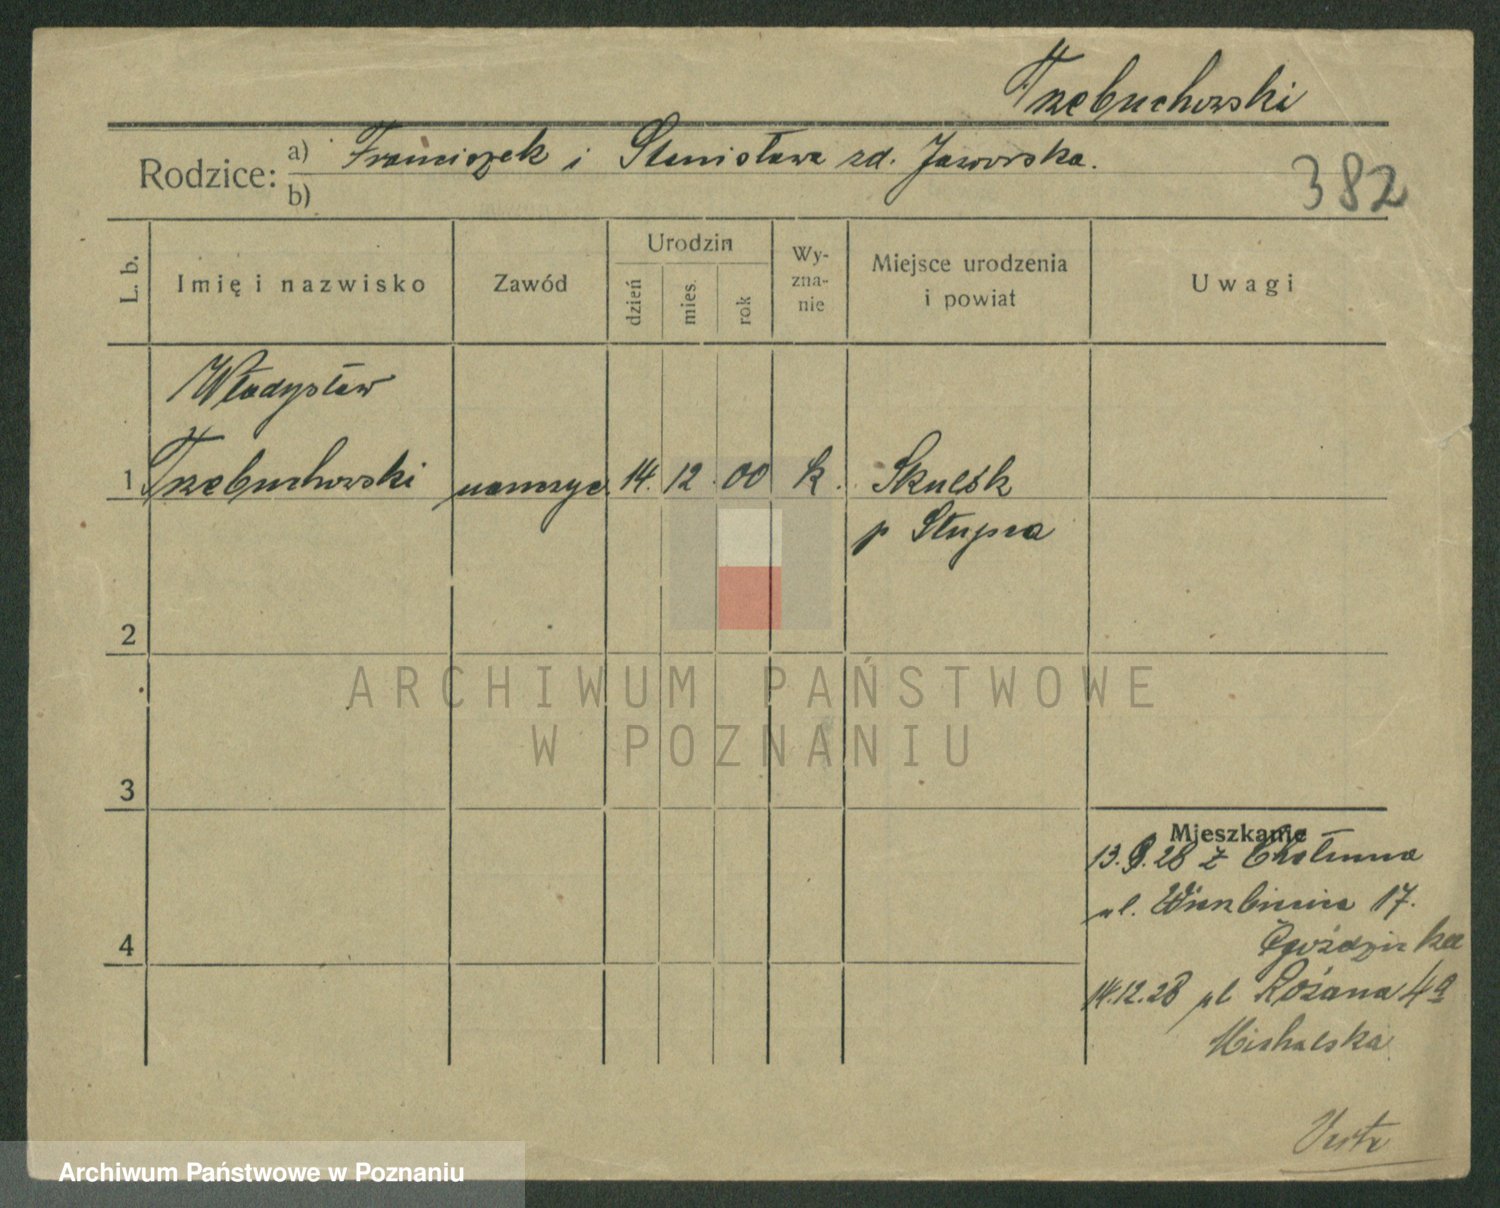 Trzebuchowski
Rodzice: a) Franciszek i Stanisława zd. Jaworska.
b)
382
L. b. Imię i nazwisko Zawód Urodzin dzień mies. rok Wy-zna-nie Miejsce urodzenia i powiat Uwagi
Władysław
1 Trzebuchowski nauczyc. 14. 12. 00 k. Skulsk
p Słupca
2
ARCHIWUM PAŃSTWOWE
W POZNANIU
3
Mieszkanie
13.9.28 z
ul. Wierzbięcice 17.
4
14.12.28 ul Różana 4a
Michalska
Archiwum Państwowe w Poznaniu